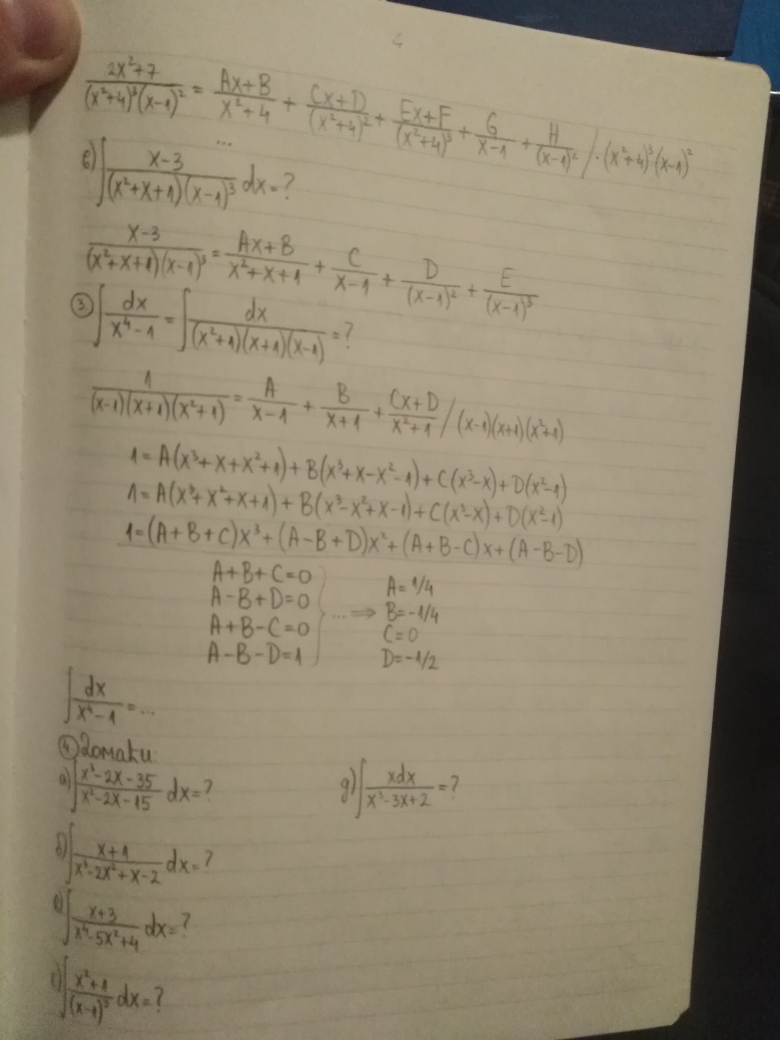 (2x²+7)/((x²+4)³(x-1)²) = (Ax+B)/(x²+4) + (Cx+D)/(x²+4)² + (Ex+F)/(x²+4)³ + G/(x-1) + H/(x-1)² / ·(x²+4)³(x-1)²
...
в) ∫ (x-3)/((x²+x+1)(x-1)³) dx = ?
(x-3)/((x²+x+1)(x-1)³) = (Ax+B)/(x²+x+1) + C/(x-1) + D/(x-1)² + E/(x-1)³
③ ∫ dx/(x⁴-1) = ∫ dx/((x²+1)(x+1)(x-1)) = ?
1/((x-1)(x+1)(x²+1)) = A/(x-1) + B/(x+1) + (Cx+D)/(x²+1) / (x-1)(x+1)(x²+1)
1=A(x³+x+x²+1)+B(x³+x-x²-1)+C(x³-x)+D(x²-1)
1=A(x³+x²+x+1)+B(x³-x²+x-1)+C(x³-x)+D(x²-1)
1=(A+B+C)x³+(A-B+D)x²+(A+B-C)x+(A-B-D)
A+B+C=0 A=1/4
A-B+D=0 ... ⇒ B=-1/4
A+B-C=0 C=0
A-B-D=1 D=-1/2
∫ dx/(x⁴-1) = ...
④ Домаћи:
а) ∫ (x³-2x-35)/(x²-2x-15) dx = ? д) ∫ xdx/(x³-3x+2) = ?
б) ∫ (x+1)/(x³-2x²+x-2) dx = ?
в) ∫ (x+3)/(x⁴-5x²+4) dx = ?
г) ∫ (x²+1)/(x-1)³ dx = ?